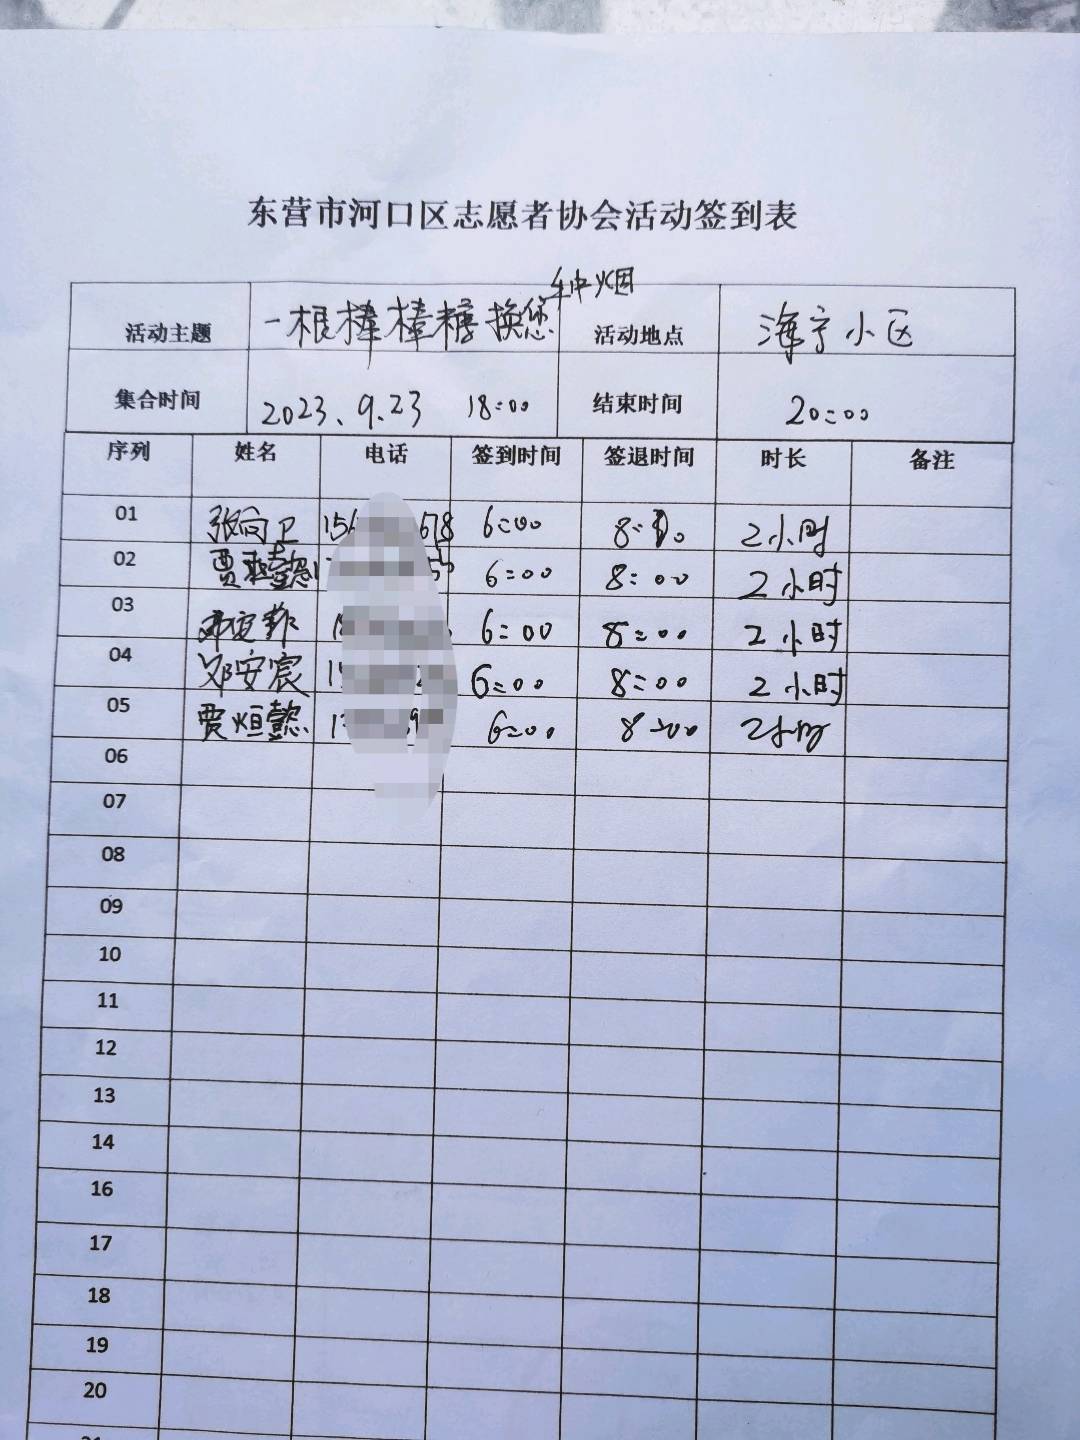 东营市河口区志愿者协会活动签到表
活动主题 一根棒棒糖换您一种烟 活动地点 海宁小区
集合时间 2023.9.23 18:00 结束时间 20:00
序列 姓名 电话 签到时间 签退时间 时长 备注
01 张向卫 6:00 2小时
02 6:00 8:00 2小时
03 6:00 8:00 2小时
04 邓安宸 6:00 8:00 2小时
05 贾烜懿 6:00 8:00 2小时
06
07
08
09
10
11
12
13
14
16
17
18
19
20